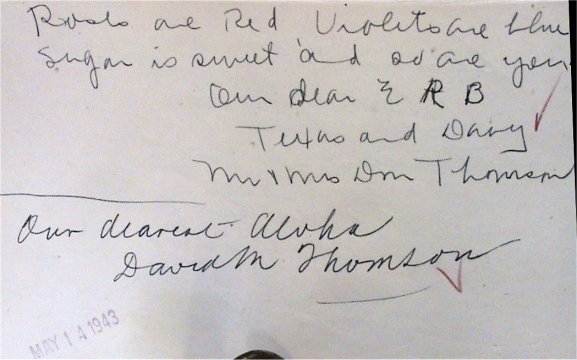 Roses are Red Violets are blue
Sugar is sweet and so are you
Our dear E R B
Texas and Davy
Mr & Mrs Dm Thomson
Our dearest Aloha
David M Thomson
MAY 14 1943